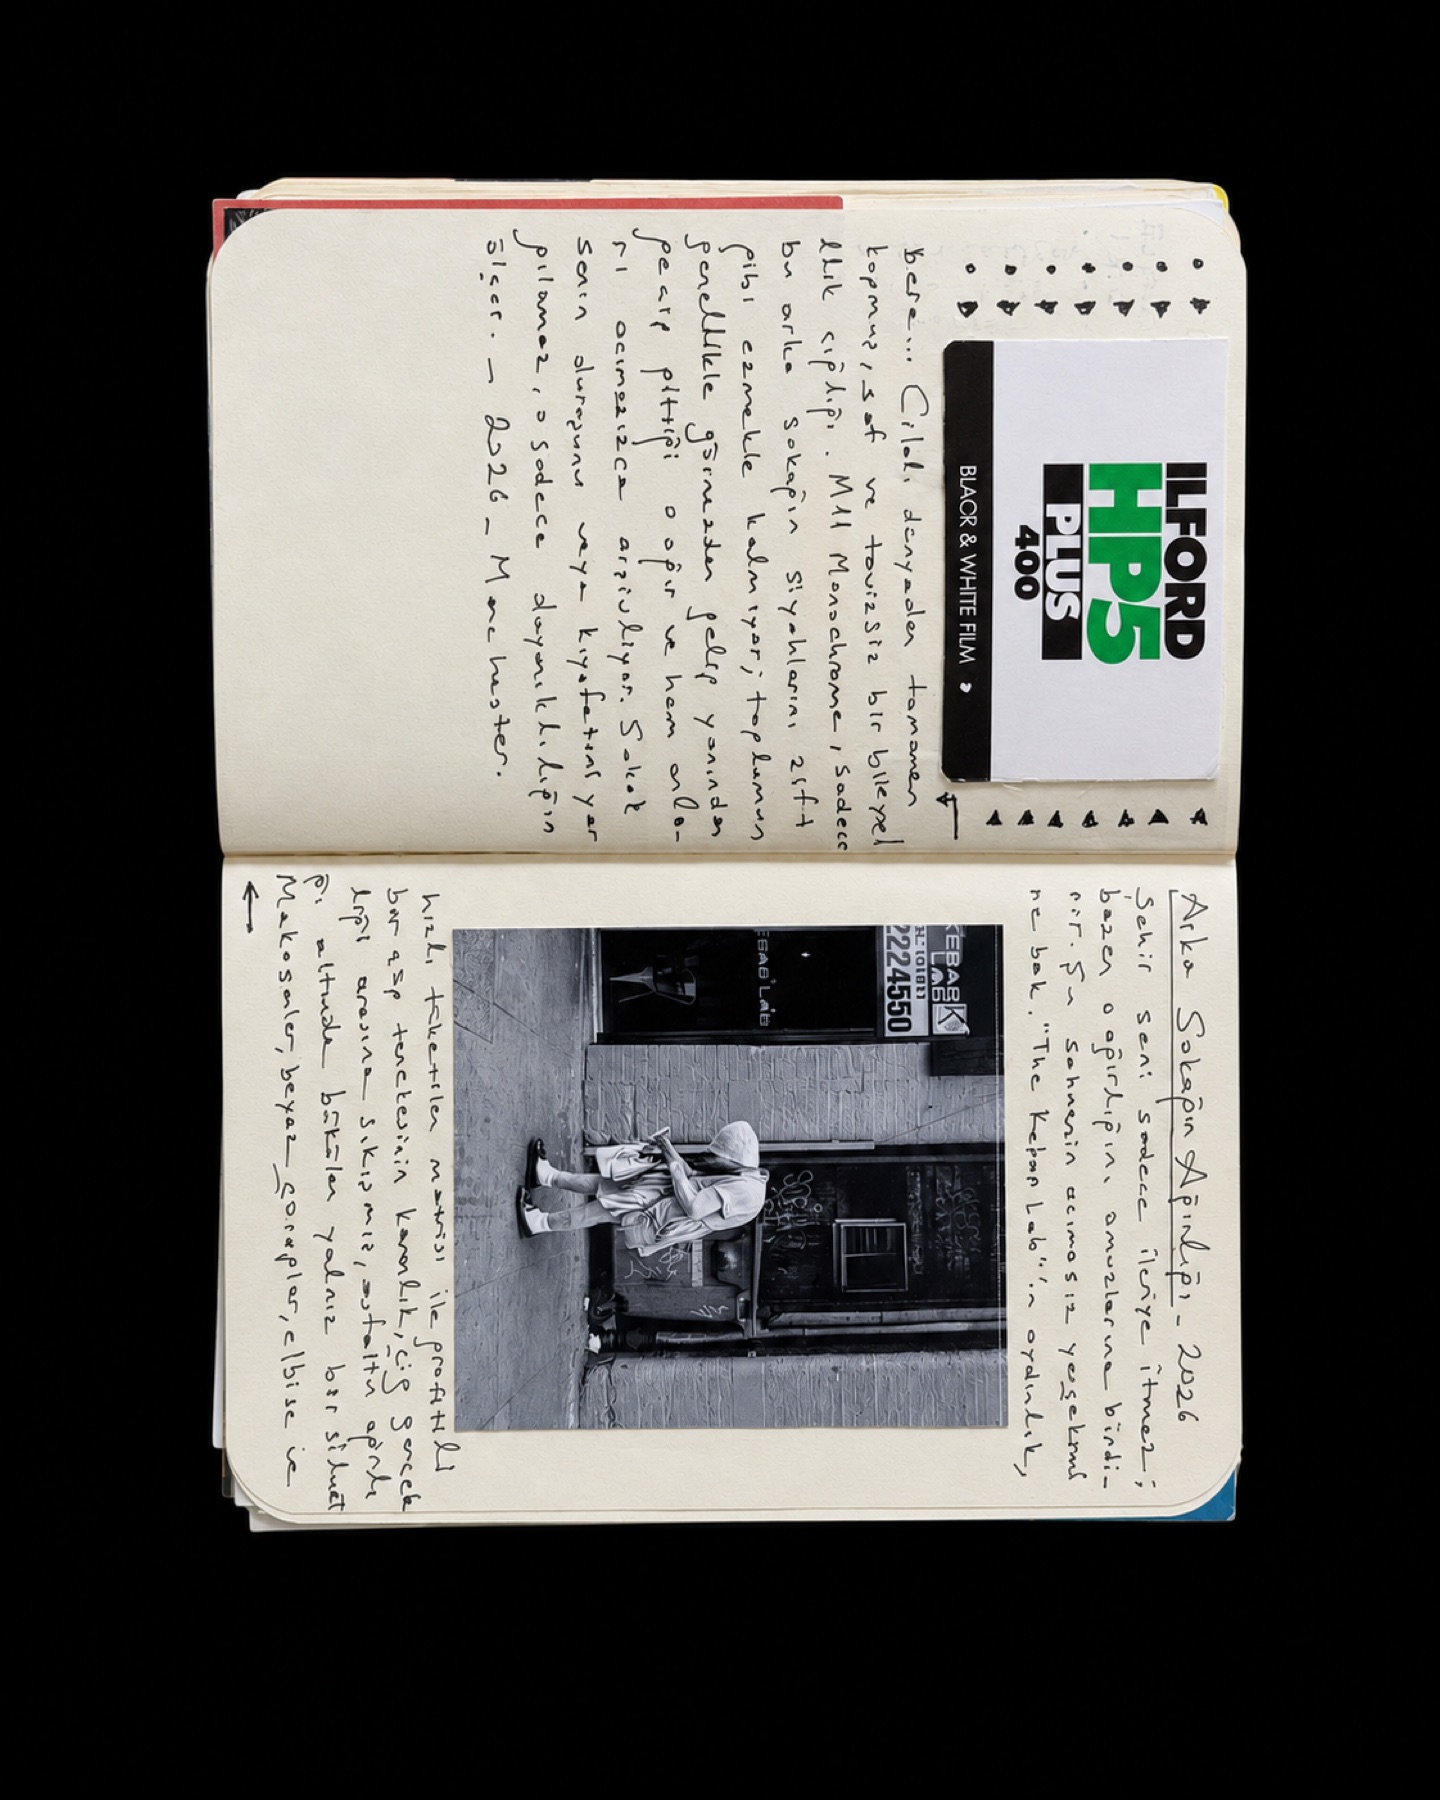 Arka Sokağın Ağırlığı - 2026
Şehir seni sadece ileriye itmez;
bazen o ağırlığını omuzlarına bindi-
rir. Şu sahnenin acımasız
ne bak. "The Kepap Lab"ın aydınlık,
KEBAB
LAB
2224550
hızlı tüketilen ile
karanlık, çiğ gerçek
liği arasına sıkışmış, asfaltın ağırlı
ğı altında bükülen yalnız bir silüet
Makosenler, beyaz çoraplar, elbise ve
ILFORD
HP5
PLUS
400
BLACR & WHITE FILM
bere... Cilalı dünyadan tamamen
kopmuş, saf ve tavizsiz bir bireysel
llik çığlığı. M11 Monochrome, sadece
bu arka sokağın siyahlarını zift
gibi ezmekle kalmıyor; toplumun
genellikle görmezden gelip yanından
geçip gittiği o ağır ve ham anla-
rı acımasızca arşivliyor. Sokak
senin duruşunu veya kıyafetini yar
gılamaz, o sadece dayanıklılığını
ölçer. - 2026 - Manchester.